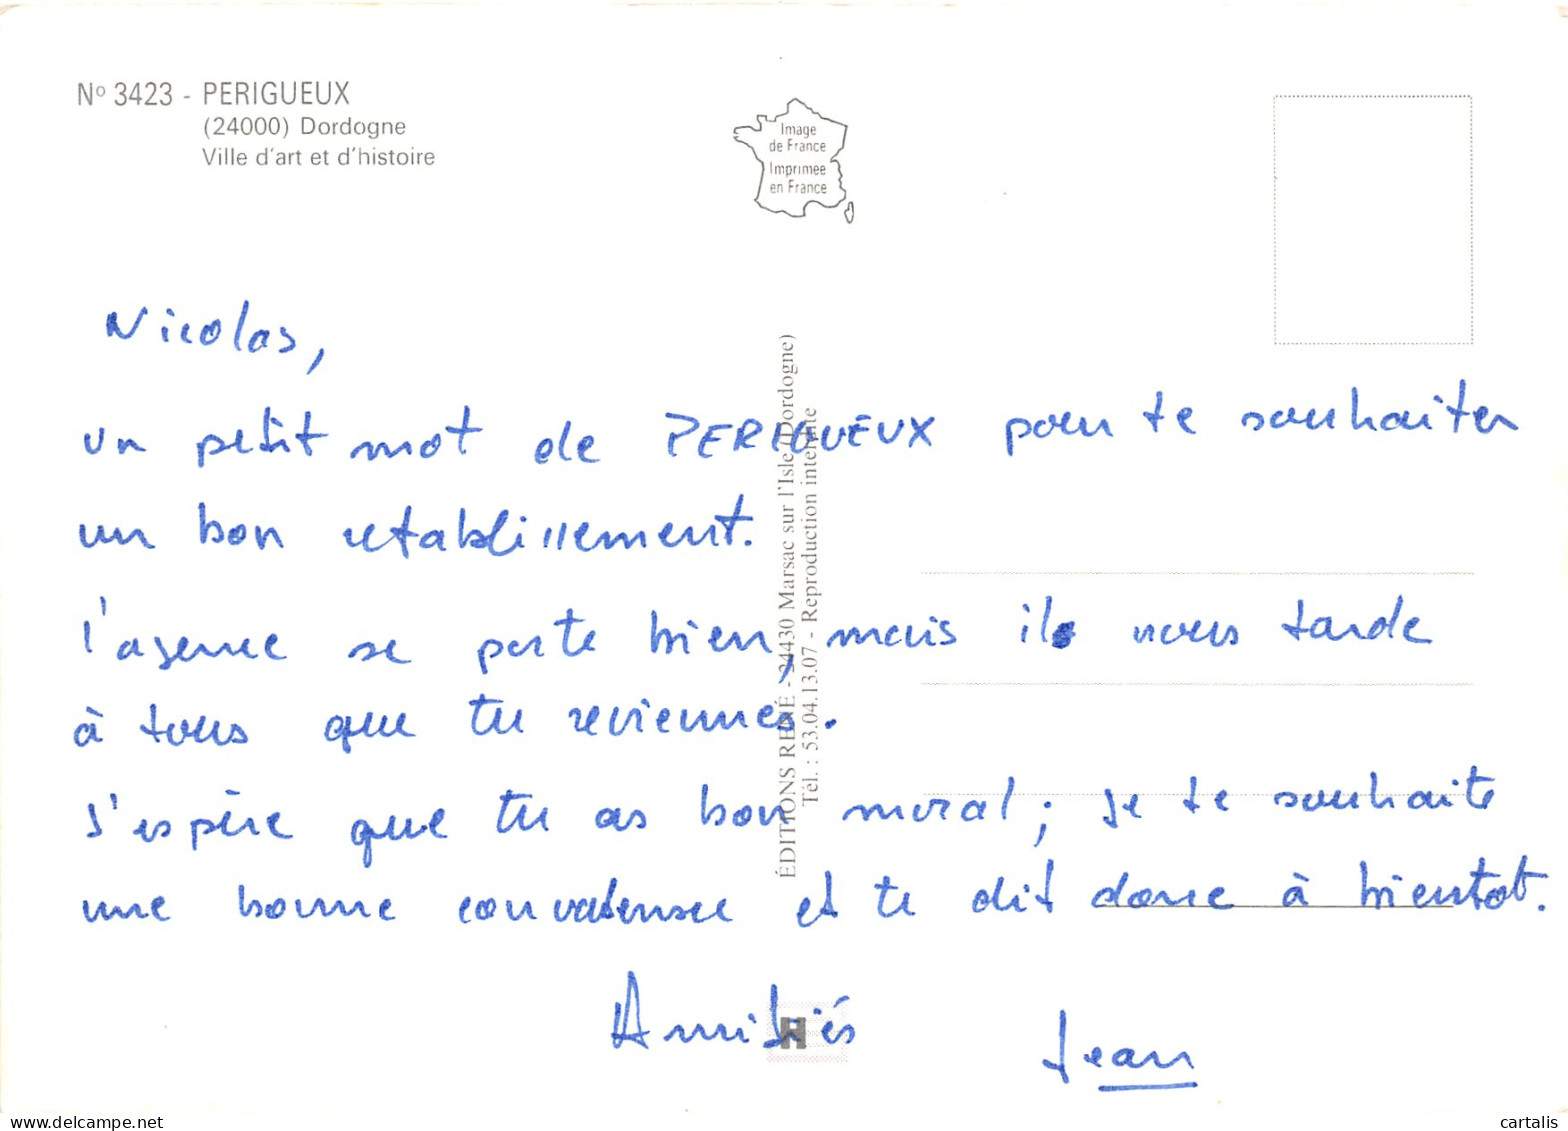 Nº 3423 - PERIGUEUX
(24000) Dordogne
Ville d'art et d'histoire
Image
de France
Imprimée
en France
Nicolas,
un petit mot de PERIGUEUX pour te souhaiter
un bon rétablissement.
l'agence se porte bien, mais il nous tarde
à tous que tu reviennes.
J'espère que tu as bon moral ; je te souhaite
une bonne convalensce et te dit donc à bientot.
Amitiés
Jean
ÉDITIONS RENÉ - 24430 Marsac sur l'Isle (Dordogne)
Tél. : 53.04.13.07 - Reproduction interdite
H
www.delcampe.net
cartalis